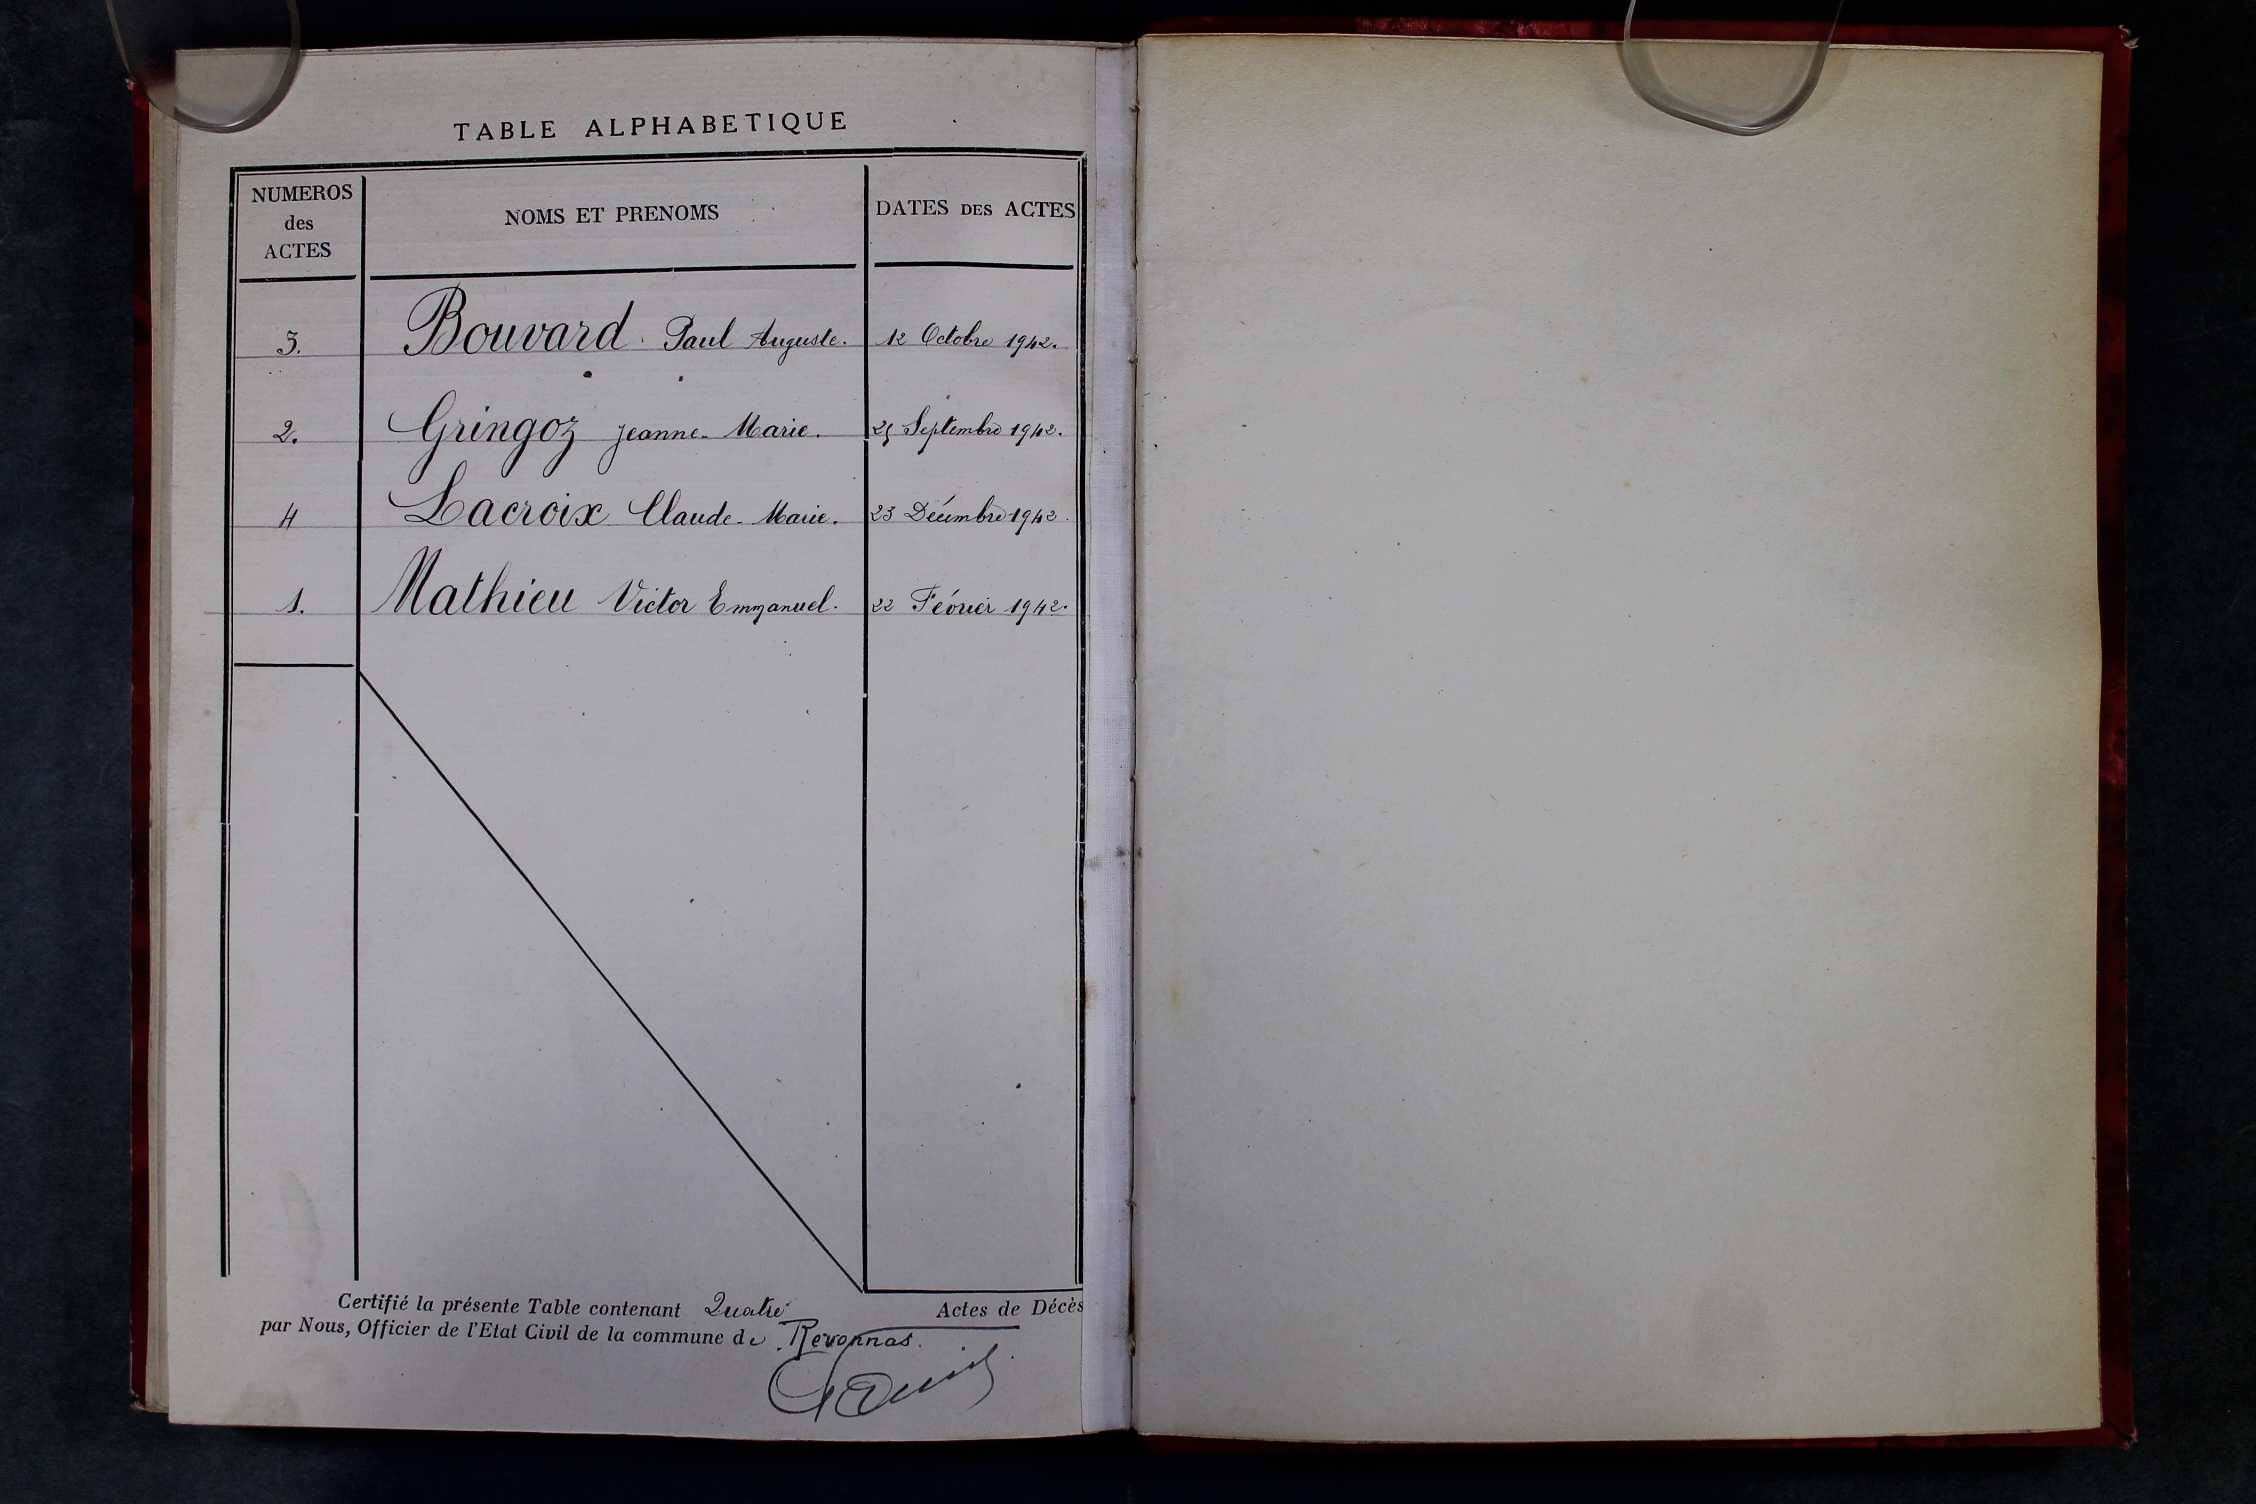 TABLE ALPHABETIQUE
NUMEROS des ACTES
NOMS ET PRENOMS
DATES DES ACTES
3. Bouvard Paul Auguste. 12 Octobre 1942.
2. Gringoz Jeanne-Marie. Septembre 1942.
4 Lacroix Claude-Marie. 23 Décembre 1942.
1. Mathieu Victor Emmanuel. 22 Février 1942.
Certifié la présente Table contenant Quatre Actes de Décès
par Nous, Officier de l'Etat Civil de la commune de Revonnas.